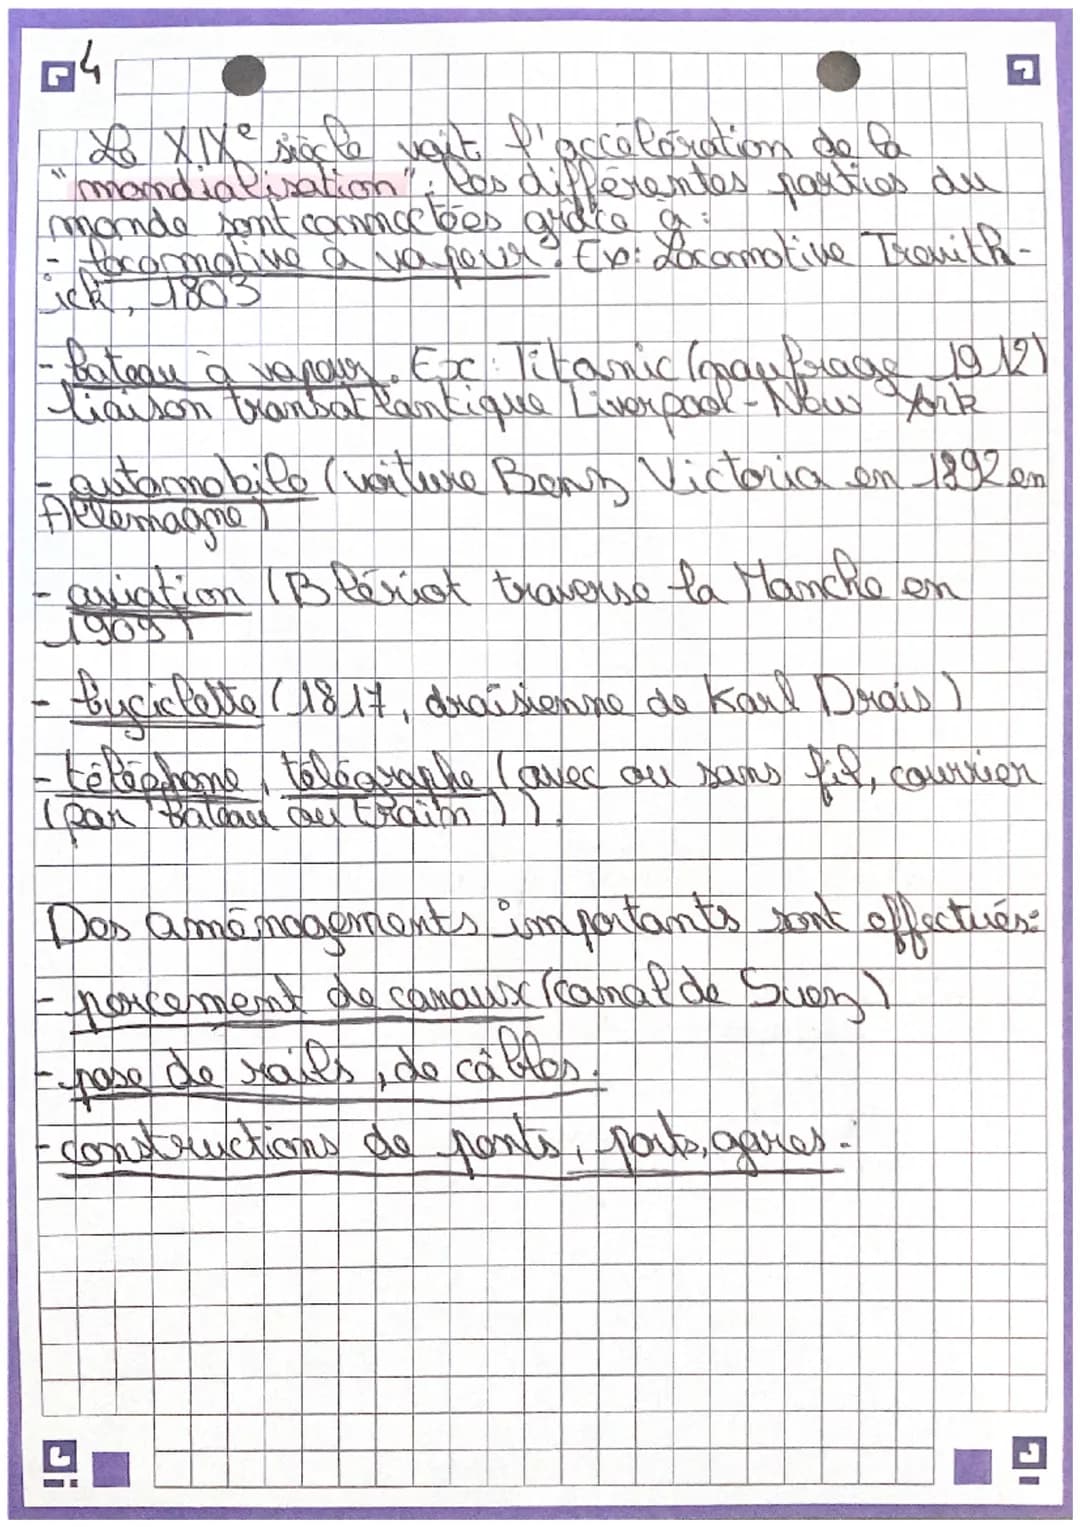 4
Le XIXe siècle voit l'accélération de la
"mondialisation": les différentes parties du
monde sont connectées grâce à :
- locomotive à vapeur. Ex: Locomotive Trevith-
ick, 1803
- bateau à vapeur. Ex : Titanic (naufrage 1912)
liaison transatlantique Liverpool - New York
- automobile (voiture Benz Victoria en 1892 en
Allemagne)
- aviation (Blériot traverse la Manche en
1909)
- byciclette (1817, draisienne de Karl Drais)
- téléphone, télégraphe (avec ou sans fil, courrier
(par bateau ou train)).
Des aménagements importants sont effectués:
- percement de canaux (canal de Suez)
- pose de rails, de câbles.
- constructions de ponts, ports, gares.